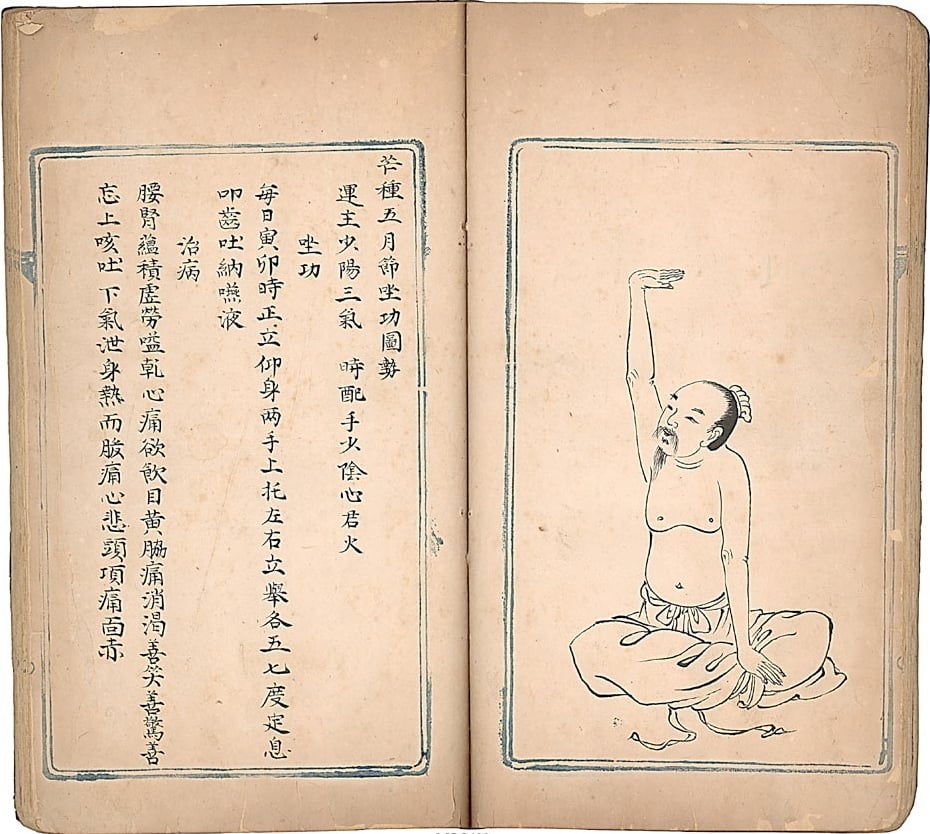 芒種五月節坐功圖勢
運主少陽三氣 時配手少陰心君火
坐功
每日寅卯時正立仰身兩手上托左右立舉各五七度定息
叩齒吐納嚥液
治病
腰腎蘊積虛勞嗌乾心痛欲飲目黃脇痛消渴善笑善驚善
忘上咳吐下氣泄身熱而股痛心悲頭項痛面赤